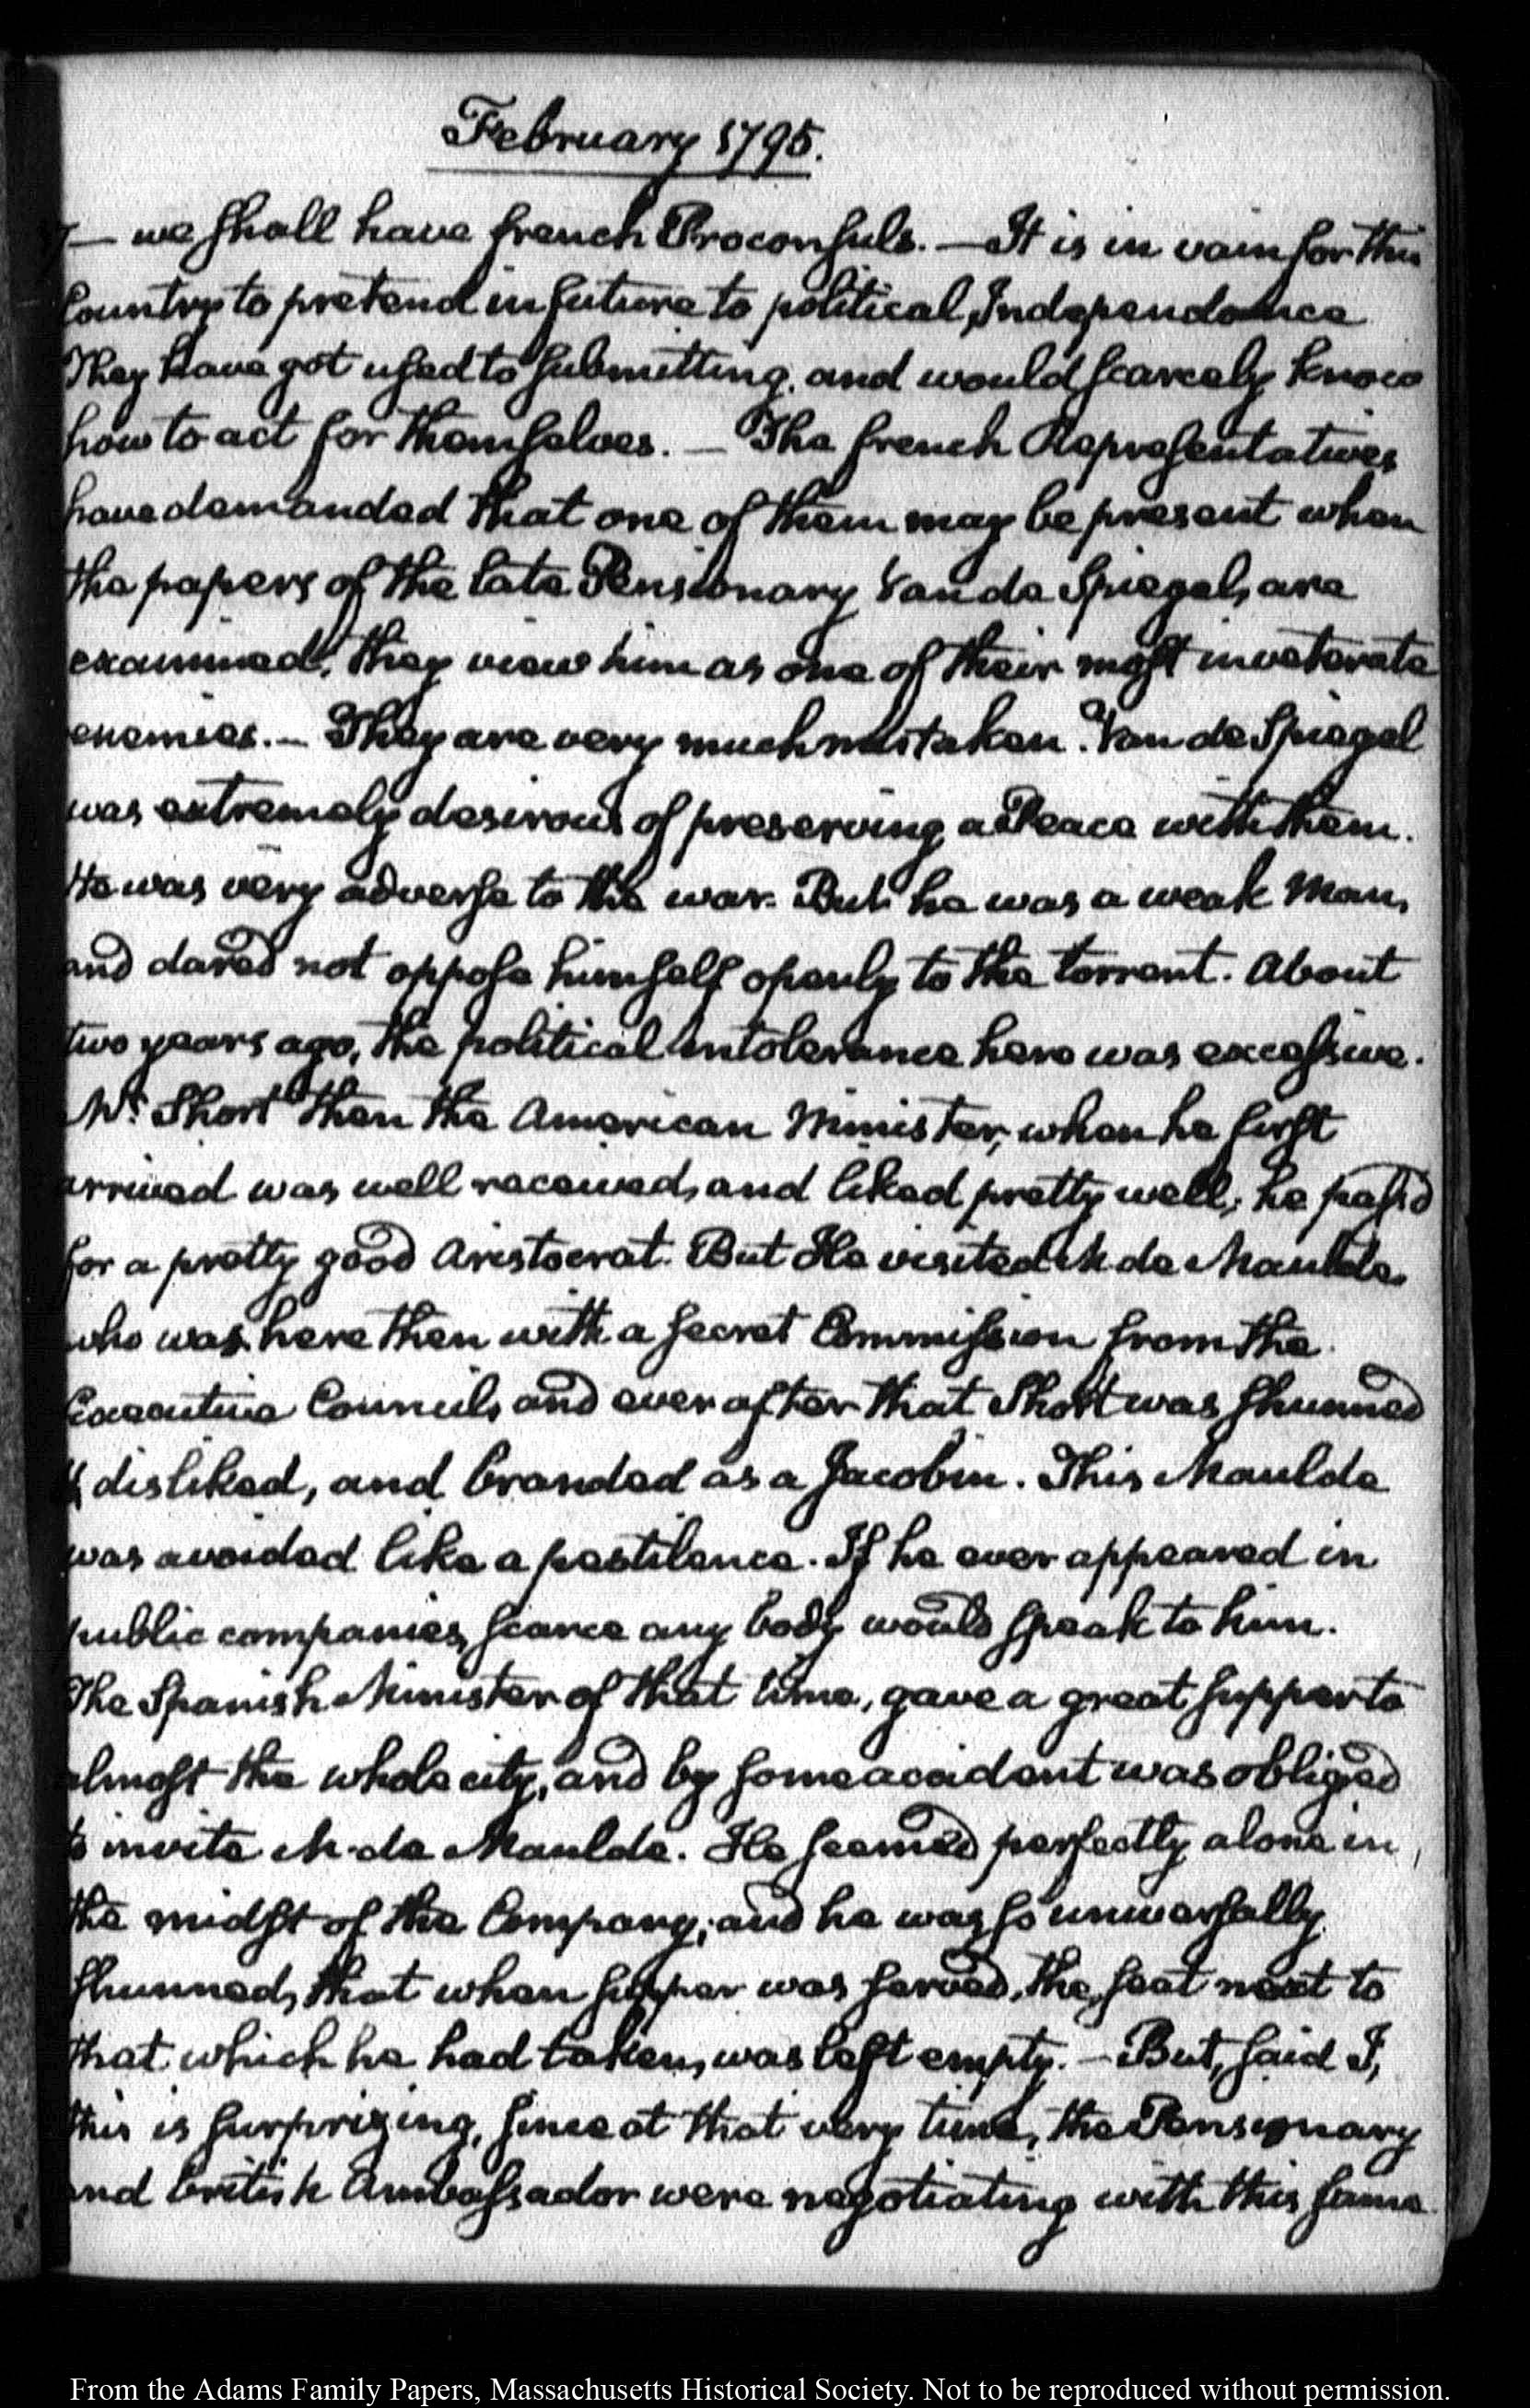 February 1795.
— we shall have french Proconsuls. — It is in vain for this
Country to pretend in future to political Independance
They have got used to submitting, and would scarcely know
how to act for themselves. — The french Representatives
have demanded that one of them may be present when
the papers of the late Pensionary Van de Spiegel, are
examined, they view him as one of their most inveterate
enemies. — They are very much mistaken. Van de Spiegel
was extremely desirous of preserving a Peace with them.
He was very adverse to the war. But he was a weak Man,
and dared not oppose himself openly to the torrent. About
two years ago, the political intolerance here was excessive.
Mr. Short then the American Minister, when he first
arrived was well received, and liked pretty well; he pass'd
for a pretty good Aristocrat. But He visited M de Maulde,
who was here then with a secret Commission from the
Executive Council, and ever after that Short was shunned
& disliked, and branded as a Jacobin. This Maulde
was avoided like a pestilence. If he ever appeared in
public companies, scarce any body would speak to him.
The Spanish Minister of that time, gave a great supper to
almost the whole city, and by some accident was obliged
to invite M. de Maulde. He seemed perfectly alone in
the midst of the Company; and he was so universally
shunned, that when supper was served, the seat next to
that which he had taken, was left empty. — But, said I,
this is surprizing, since at that very time, the Pensionary
and british Ambassador were negotiating with this same
From the Adams Family Papers, Massachusetts Historical Society. Not to be reproduced without permission.